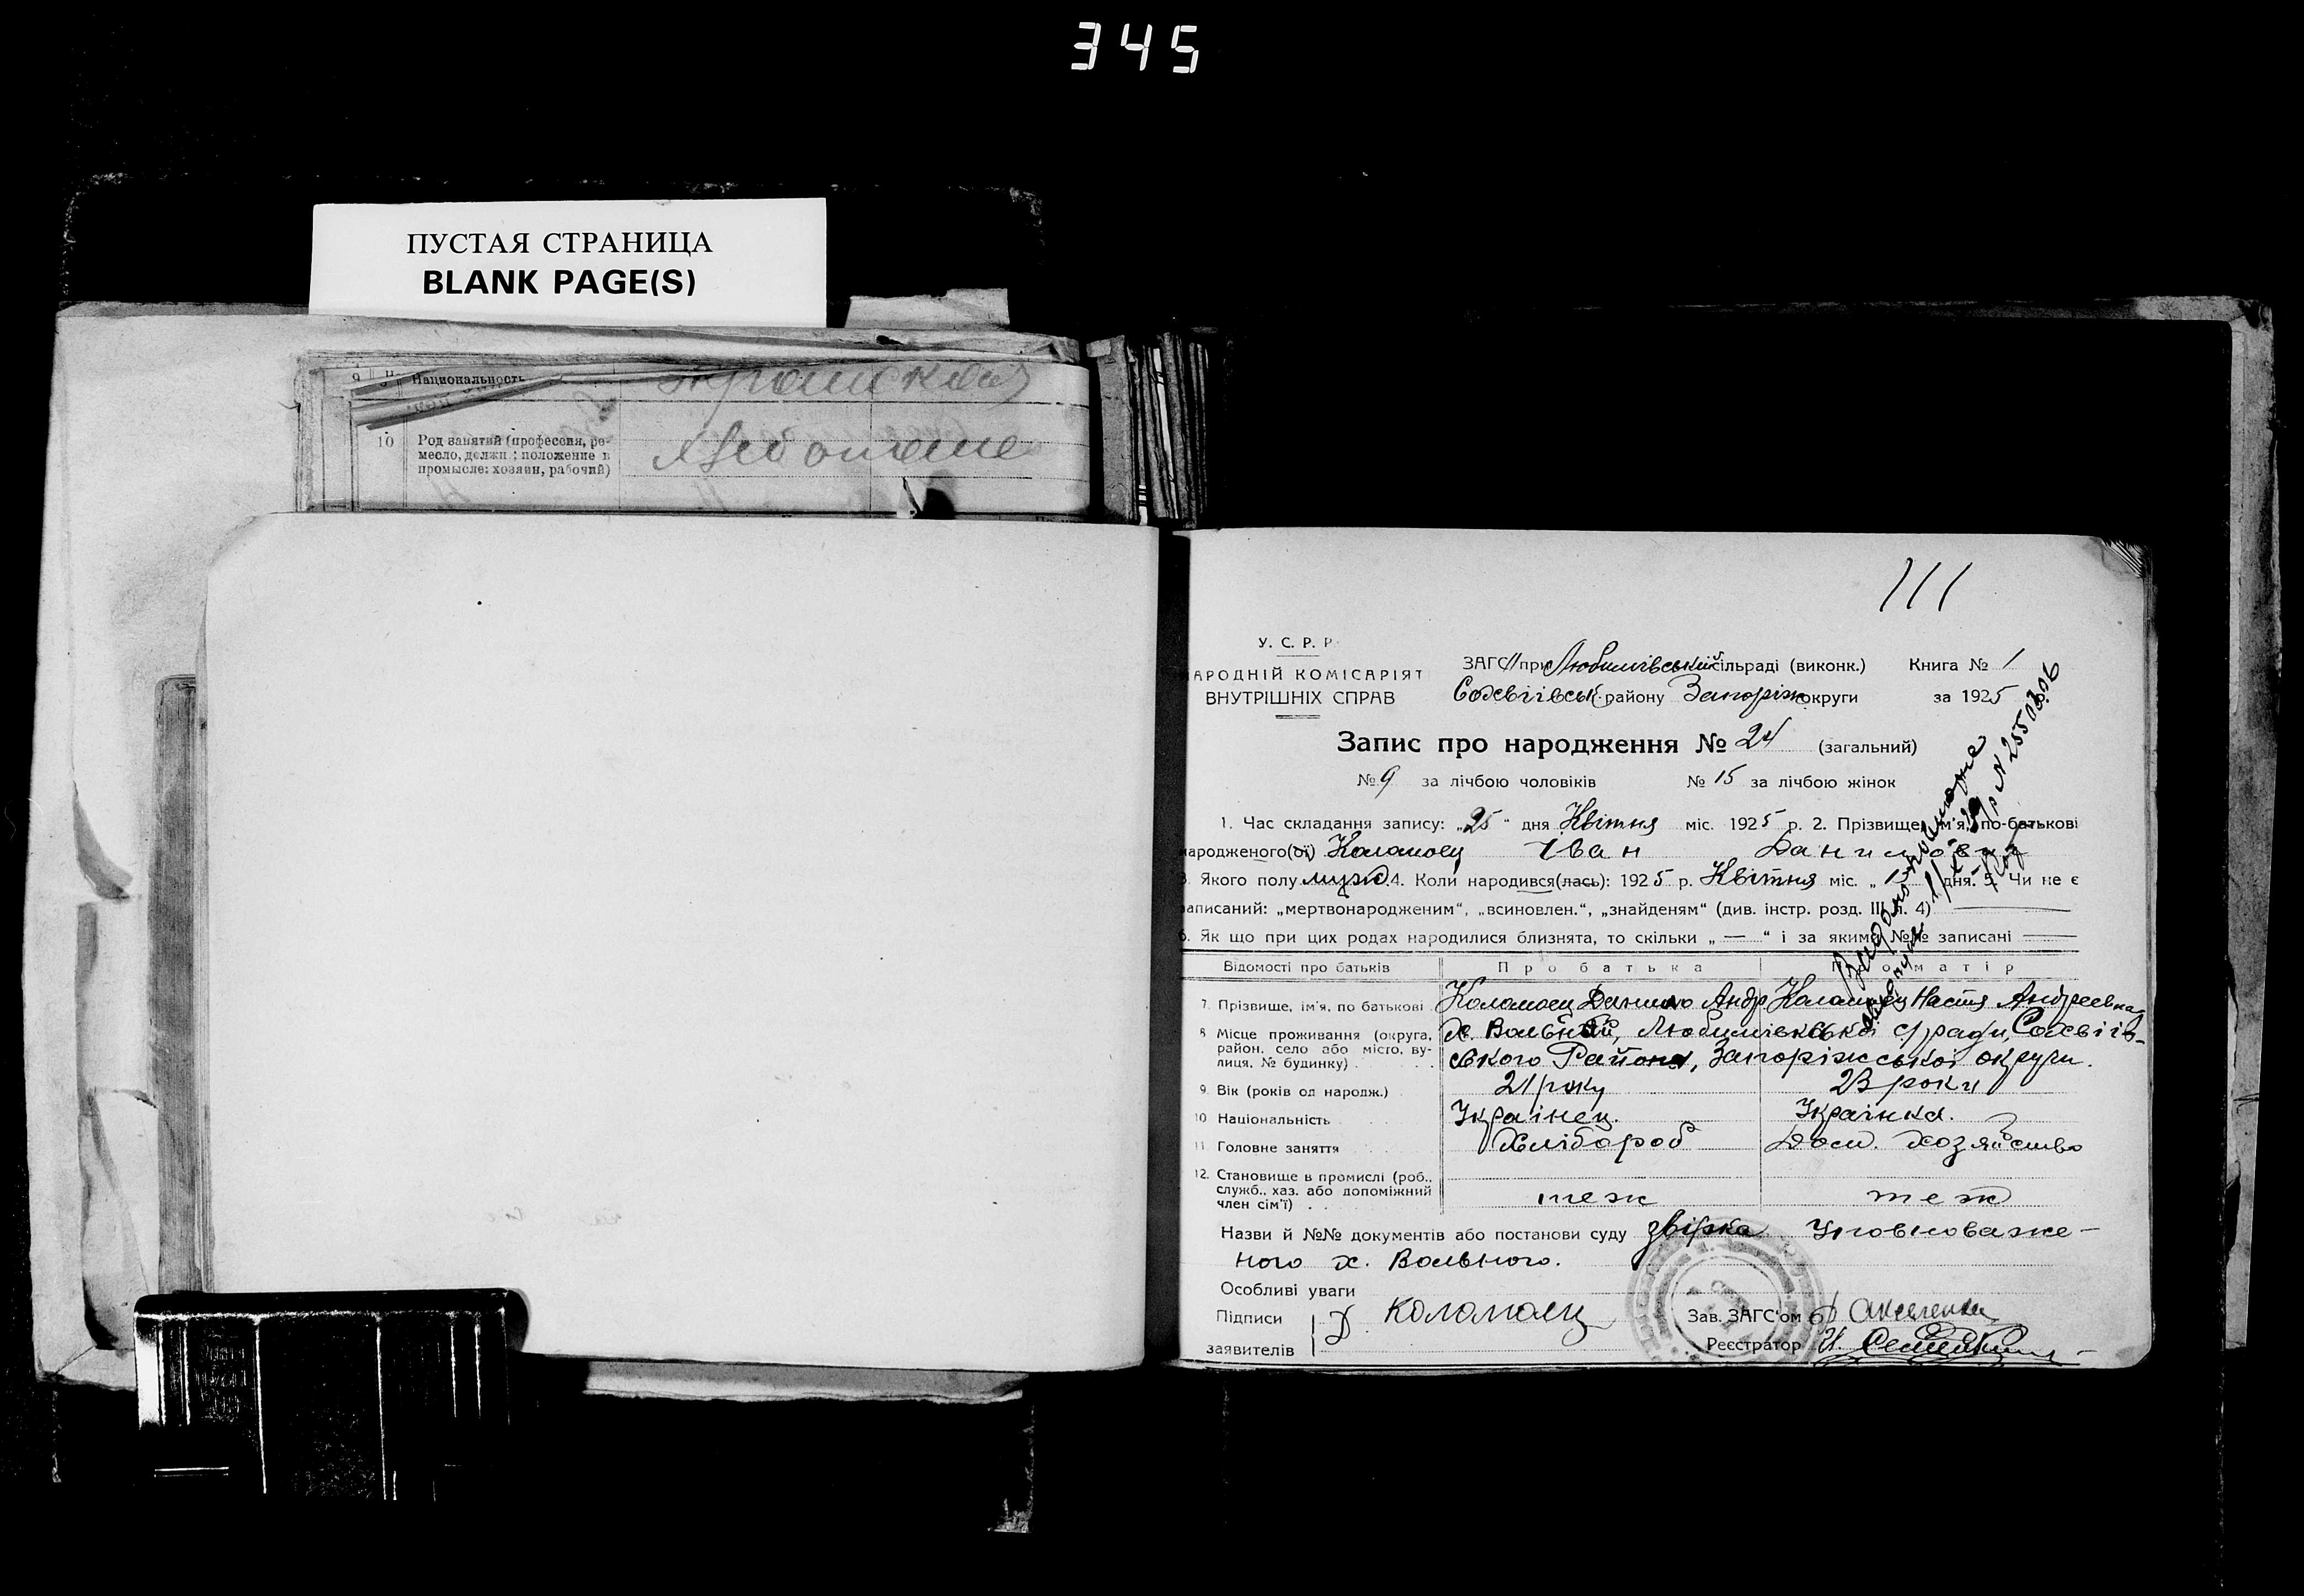 345
ПУСТАЯ СТРАНИЦА
BLANK PAGE(S)
9 Национальность
10 Род занятий (профессия, ре-
месло, должн.: положение в
промысле: хозяин, рабочий)
111
У. С. Р. Р.
НАРОДНІЙ КОМІСАРІЯТ
ВНУТРІШНІХ СПРАВ
ЗАГС при Любимівський сільраді (виконк.) Книга № 1
района Запоріж округи за 1925
Запис про народження № 24 (загальний)
№ 9 за лічбою чоловіків № 15 за лічбою жінок
1. Час складання запису: „25“ дня Квітня міс. 1925 р. 2. Прізвище, ім'я, по-батькові
народженого(ої) Коломоец Іван Данилович
3. Якого полу муж. 4. Коли народився(лась): 1925 р. Квітня міс. „15 дня. 5. Чи не є
записаний: „мертвонародженим“, „всиновлен.“, „знайденям“ (див. інстр. розд. III п. 4)
6. Як що при цих родах народилися близнята, то скільки „ — “ і за якими №№ записані —
Відомості про батьків Про батька Про матір
7. Прізвище, ім'я, по батькові Коломоец Данило Андр Коломоец Настя Андреевна
8 Місце проживання (округа, район, село або місто, ву-лиця, № будинку) х. Вольный, Любимівської с/ради,
ського Района, Запоріжської округи.
9. Вік (років од народж.) 21 року 23 роки
10 Національність Українец. Українка.
11 Головне заняття Хлібороб Дом. хозяйство
12. Становище в промислі (роб., служб., хаз. або допоміжний член сім'ї) теж теж
Назви й №№ документів або постанови суду звірка Уповноваже-
ного х. Вольного.
Особливі уваги
Підписи заявителів Д. Коломоец
Зав. ЗАГС'ом
Реєстратор И.